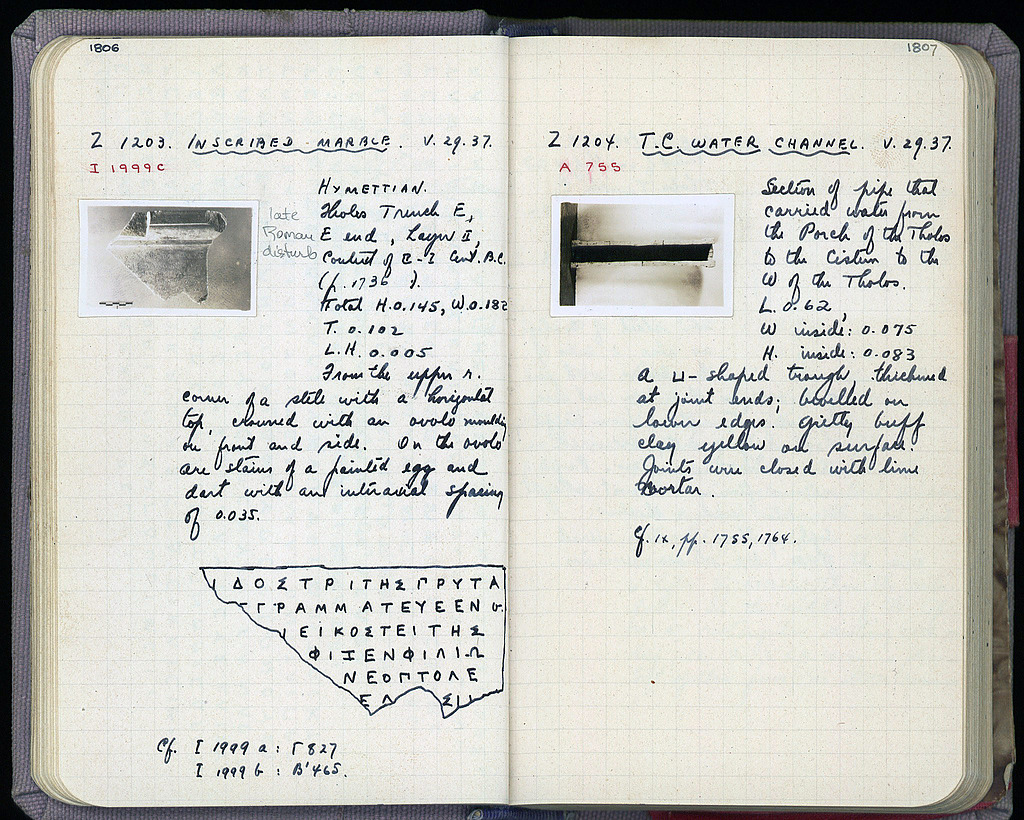 1806
Z 1203. INSCRIBED MARBLE. V.29.37.
I 1999c
late
Roman
disturb
HYMETTIAN.
Tholos Trench E,
E end, Layer II,
Context of II-I Cent. B.C.
(p. 1736 ).
Total H.0.145, W.0.182
T. 0.102
L.H. 0.005
From the upper r.
corner of a stele with a horizontal
top, crowned with an ovolo moulding
on front and side. On the ovolo
are stains of a painted egg and
dart with an interaxial spacing
of 0.035.
ΙΔΟΣΤΡΙΤΗΣΠΡΥΤΑ
ΓΡΑΜΜΑΤΕΥΕΕΝ
ΕΙΚΟΣΤΕΙΤΗΣ
ΦΙΞΕΝΦΙΛΙΩ
ΝΕΟΠΤΟΛΕ
Cf. I 1999 a : Γ 827
I 1999 b : B'465.
1807
Z 1204. T.C. WATER CHANNEL. V.29.37.
A 755
Section of pipe that
carried water from
the Porch of the Tholos
to the Cistern to the
W of the Tholos.
L. 0.62,
W inside: 0.075
H. inside: 0.083
A ⊔-shaped trough, thickened
at joint ends; bevelled on
lower edges. Gritty buff
clay yellow on surface.
Joints were closed with lime
mortar.
Cf. IX, pp. 1755, 1764.